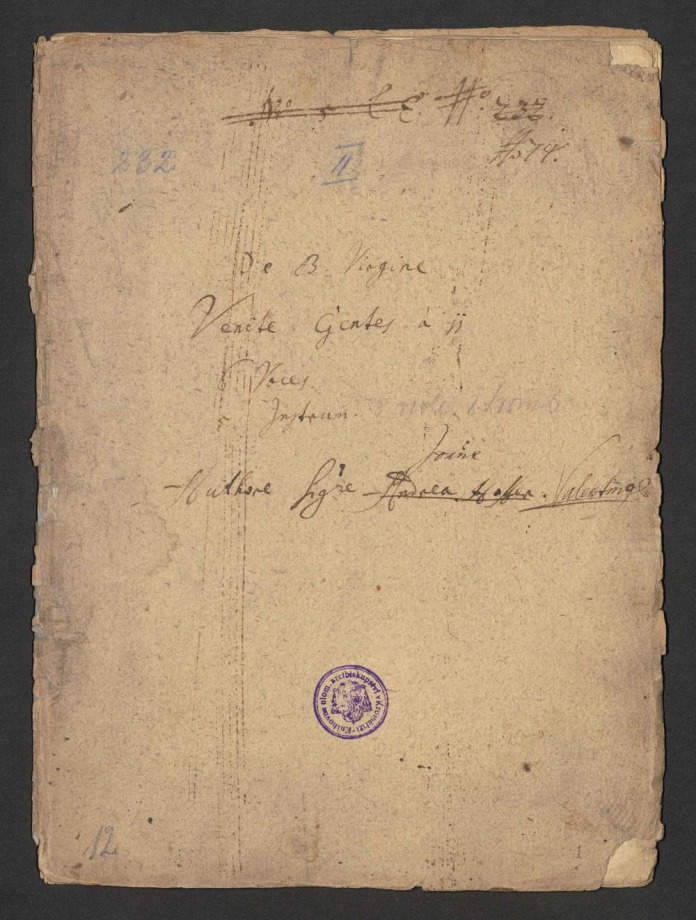 No 232.
No 74.
232 II
De B. Virgine
Venite Gentes à 11
6 Voces
5 Instrum.
Joañe
Authore Sigre Andrea Hoffer. Valentino
Knihovna olom. arcibiskupství v Kroměříži
12
1